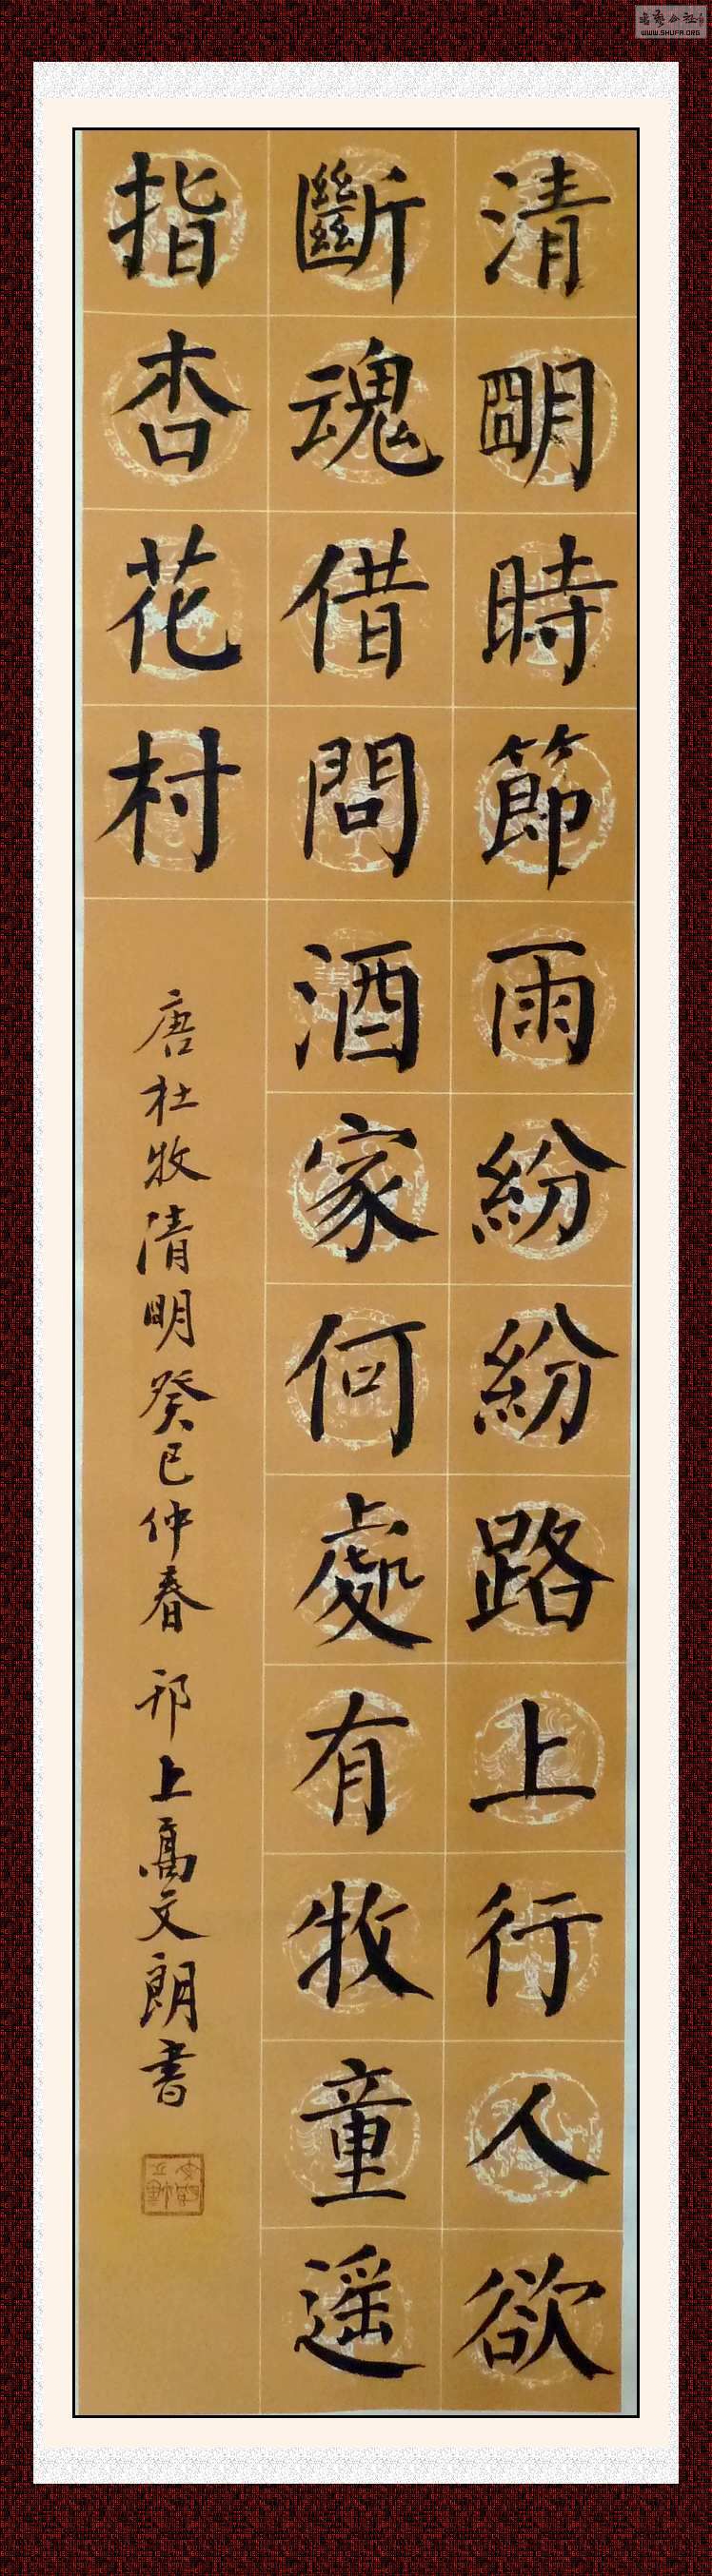 清明時節雨紛紛路上行人欲
斷魂借問酒家何處有牧童遥
指杏花村
唐杜牧清明癸巳仲春 邗上高文朗書
WWW.SHUFA.ORG